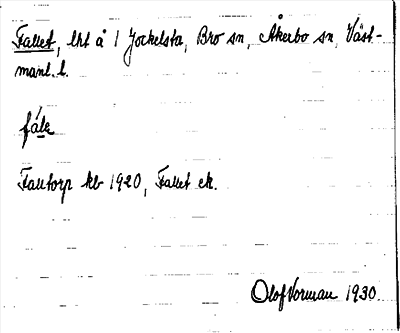 Fallet, lht å 1 Jockelsta, Bro sn, Åkerbo sn, Väst-
manl. l.
fále
Fautorp kb 1920, Fallet ek.
Olof Vorman 1930